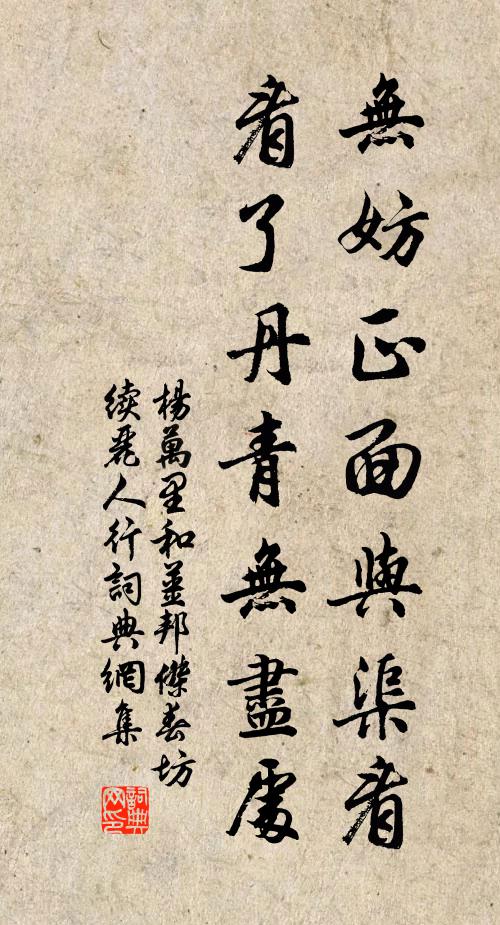 無妨正面與渠看
看了丹青無盡處
楊萬里和姜邦傑春坊
續麗人行詞典網集
詞典
网印